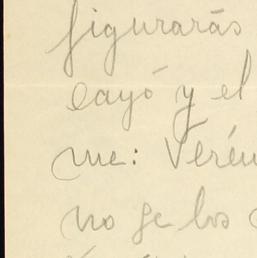 figurarás
cayó y el
me: Verén
no se los